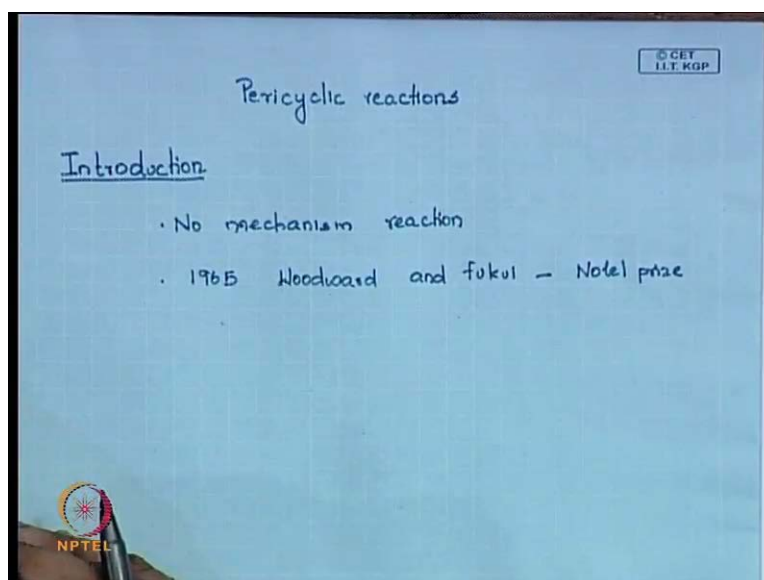 © CET
I.I.T. KGP
Pericyclic reactions
Introduction
· No mechanism reaction
· 1965 Woodward and fukui – Nobel prize
NPTEL